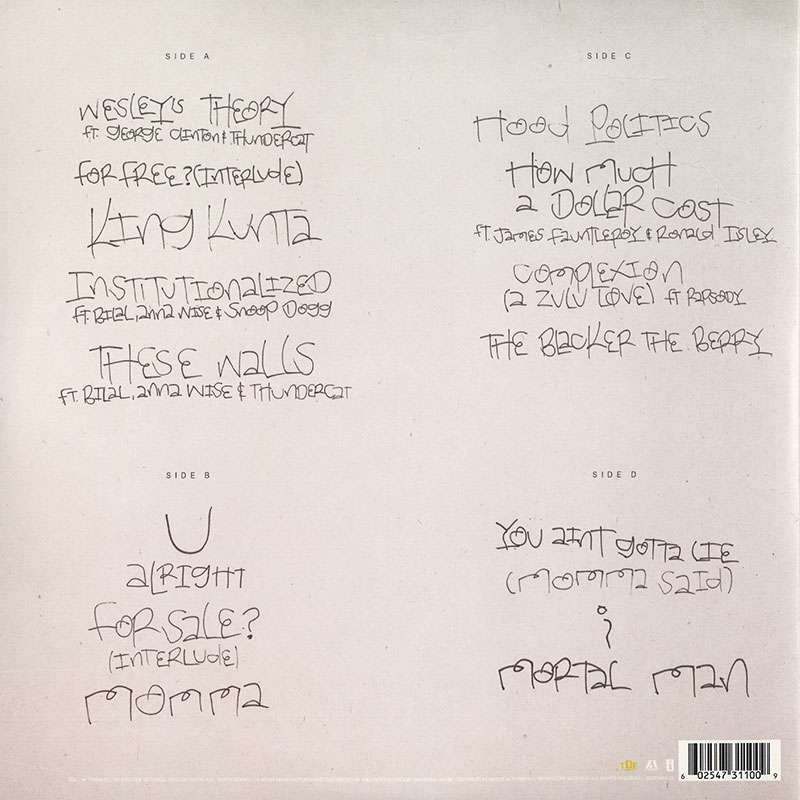 SIDE A
WESLEY'S THEORY
ft. GEORGE CLINTON & THUNDERCAT
FOR FREE? (INTERLUDE)
KING KUNTA
INSTITUTIONALIZED
ft BILAL, anna WISE & SNOOP DOGG
THESE WALLS
ft. BILAL, anna WISE & THUNDERCAT
SIDE B
U
ALRIGHT
FOR SALE?
(INTERLUDE)
MOMMA
SIDE C
HOOD POLITICS
HOW MUCH
A DOLLAR COST
ft. JAMES FAUNTLEROY & RONALD ISLEY
COMPLEXION
(A ZULU LOVE) ft RAPSODY
THE BLACKER THE BERRY
SIDE D
YOU AINT GOTTA LIE
(MOMMA SAID)
i
MORTAL MAN
TDE
6 02547 31100 9